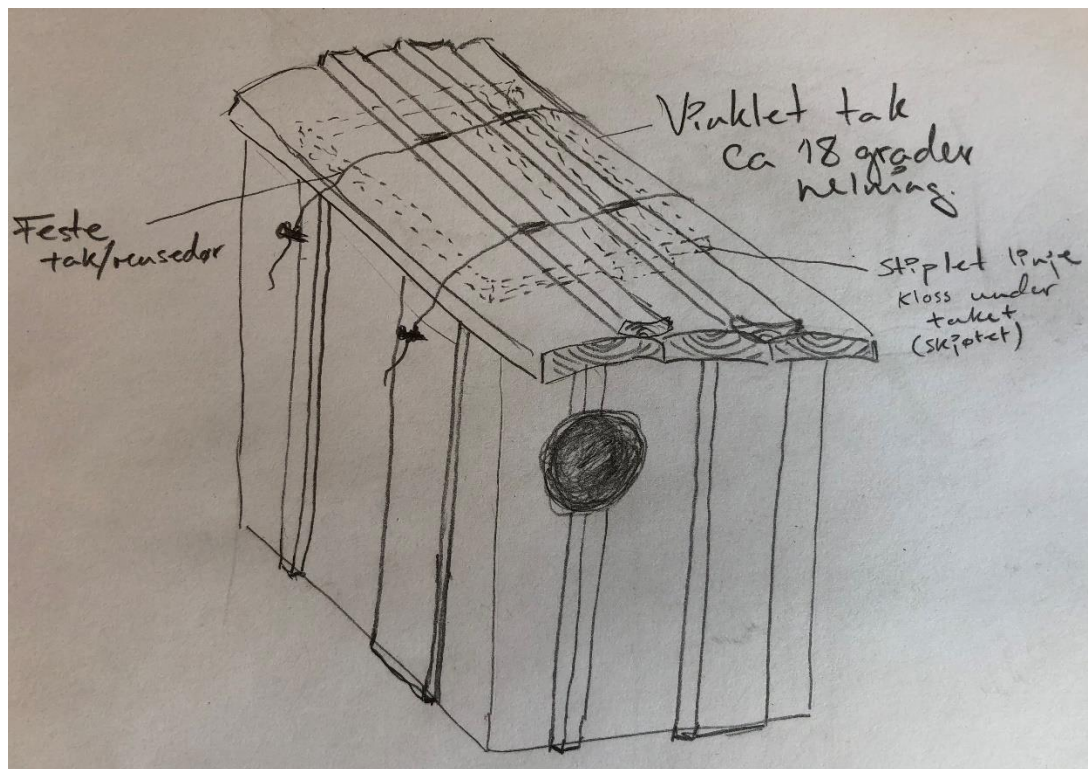 Vinklet tak
ca 18 grader
helning.
Feste
tak/rensedør
Stiplet linje
kloss under
taket